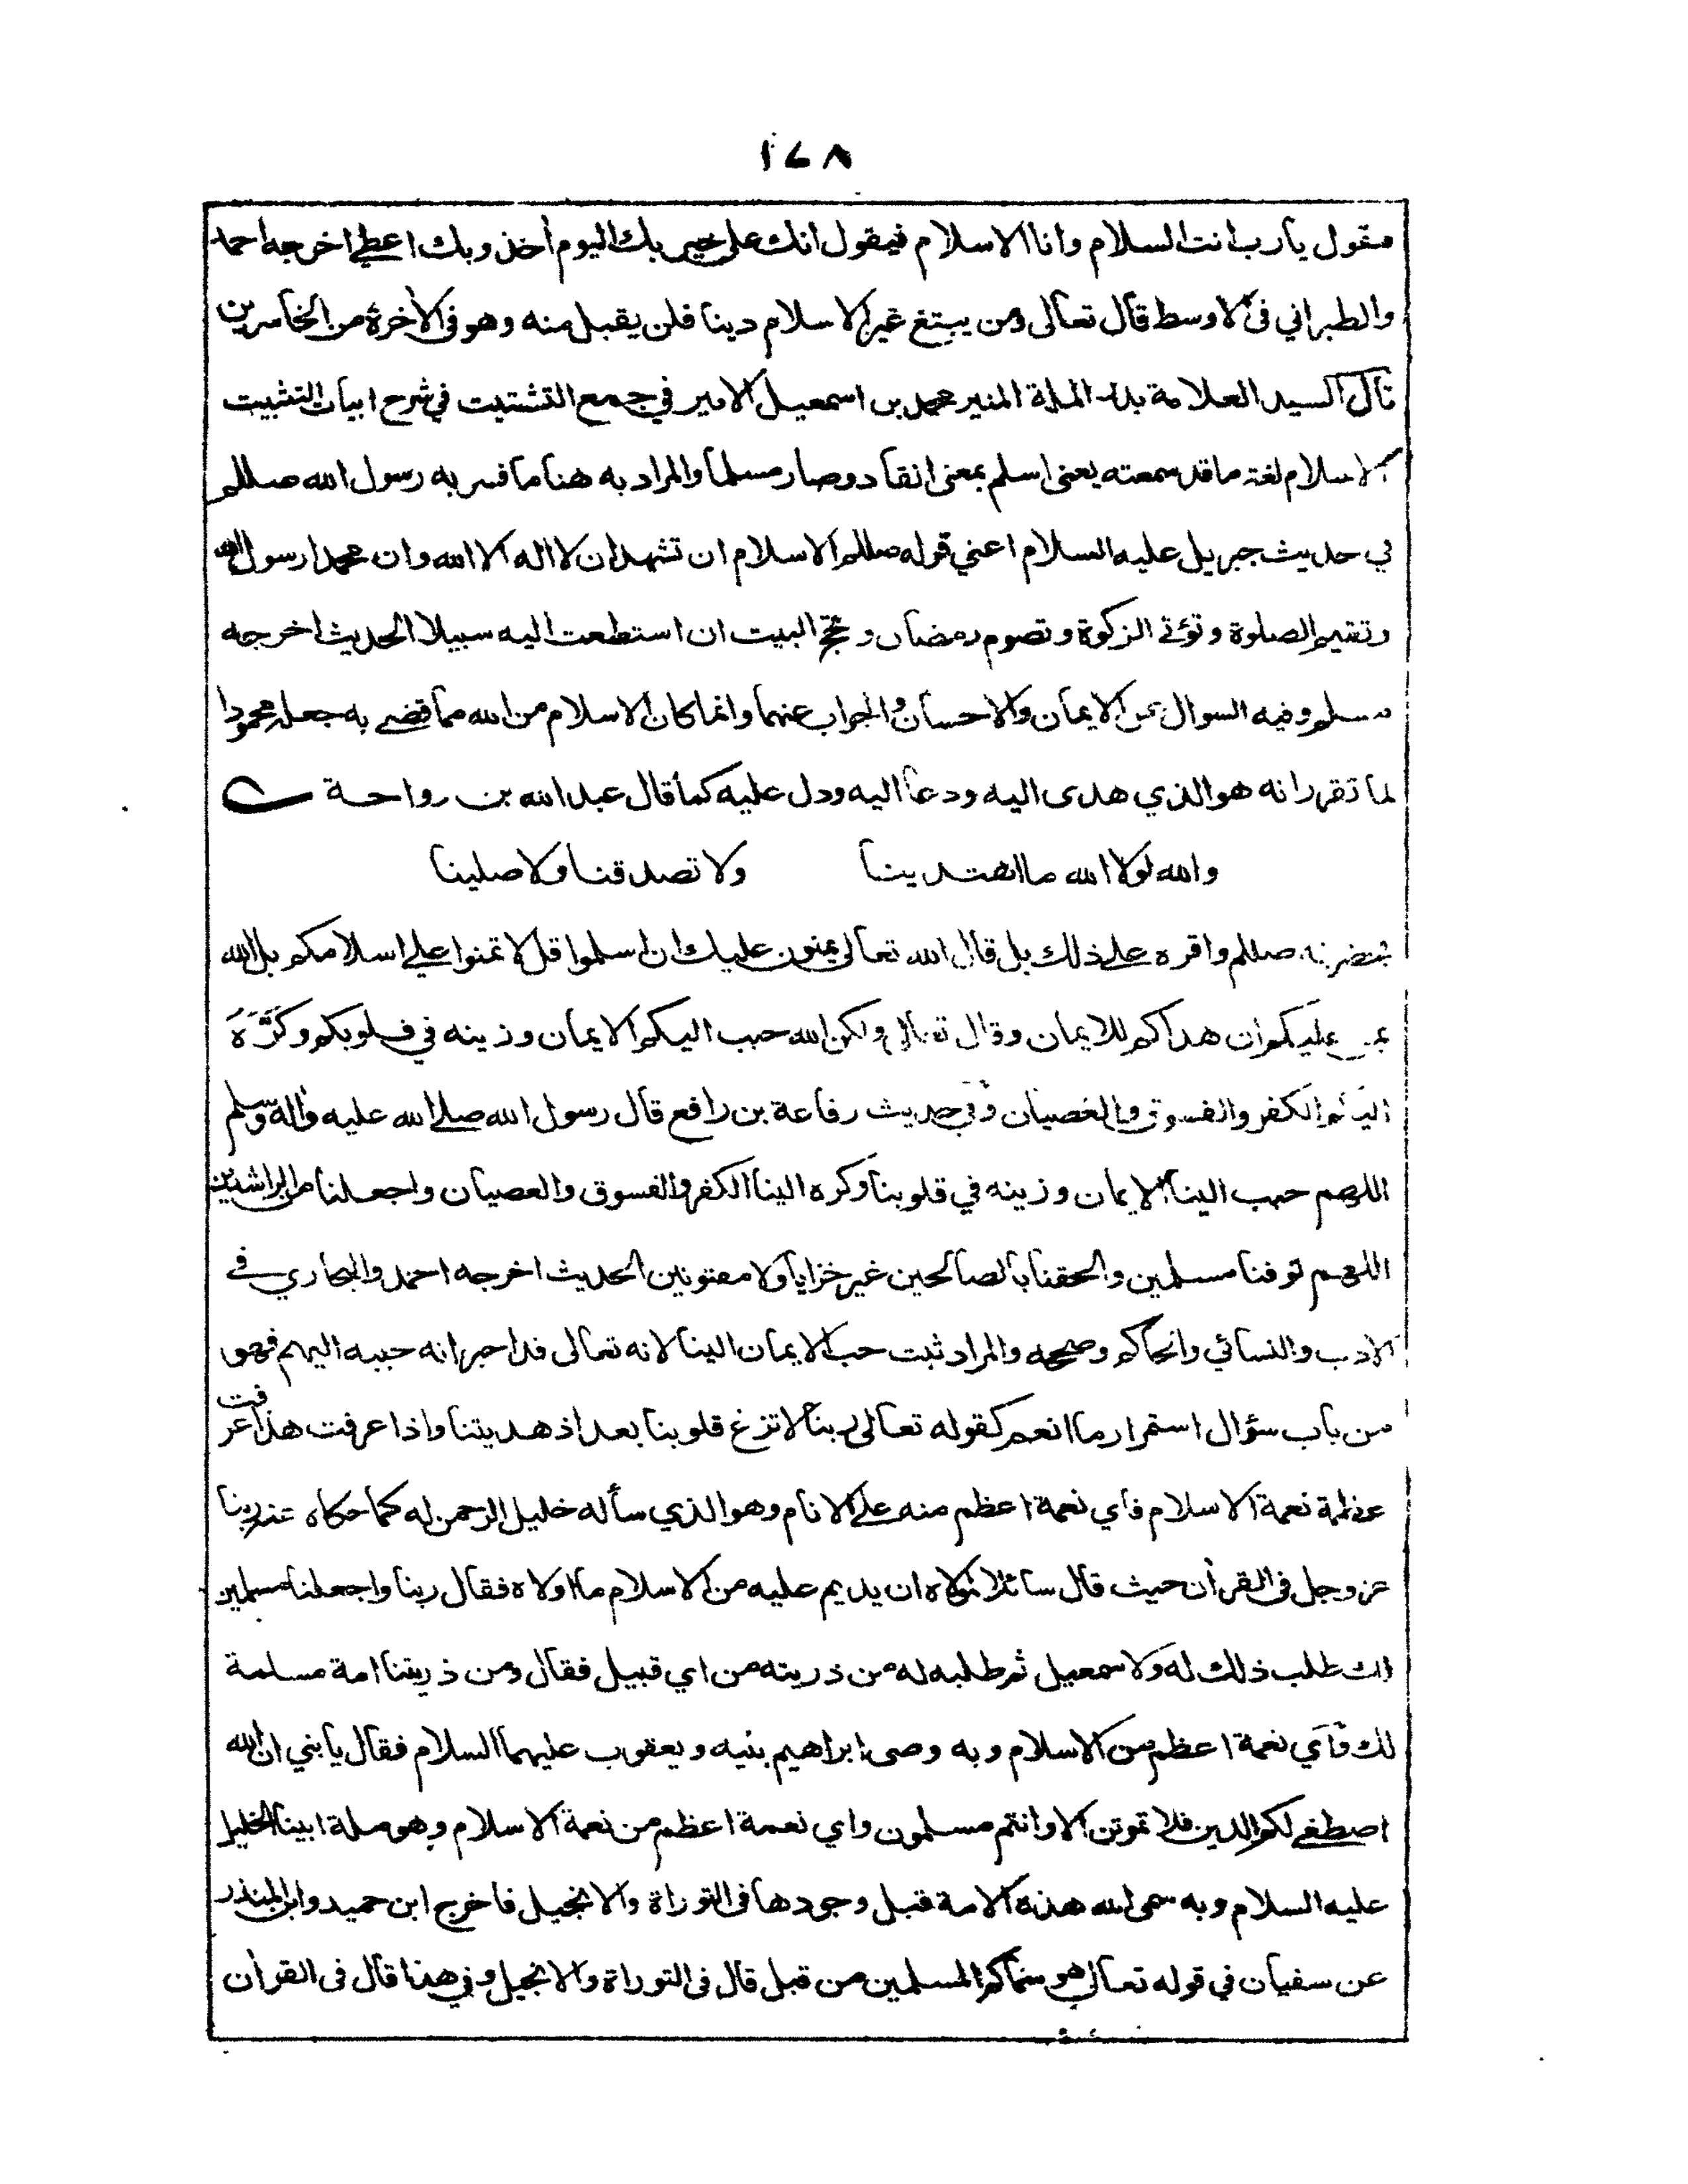 ١٤٨
فيقول يارب انت السلام وانا الاسلام فيقول انك على خير بك اليوم أخذ وبك اعطي اخرجه احمد
والطبراني في الاوسط قال تعالى ومن يبتغ غير الاسلام دينا فلن يقبل منه وهو في الأخرة من الخاسرين
قال السيد العلامة بدر الملة المنير محمد بن اسمعيل الامير في جمع التشتيت في شرح ابيات التثبيت
الاسلام لغة ما قد سمعته يعني اسلم بمعنى انقاد وصار مسلما والمراد به هنا ما فسر به رسول الله صللم
في حديث جبريل عليه السلام اعني قوله صللم الاسلام ان تشهد ان لا اله الا الله وان محمدا رسول الله
وتقيم الصلوة وتؤتي الزكوة وتصوم رمضان وتحج البيت ان استطعت اليه سبيلا الحديث اخرجه
مسلم وفيه السوال عن الايمان والاحسان والجواب عنهما وانما كان الاسلام من الله مما قضى به جعله محمودا
لما تقرر انه هو الذي هدى اليه ودعا اليه ودل عليه كما قال عبد الله بن رواحة
والله لولا الله ما اهتدينا ولا تصدقنا ولا صلينا
بحضرته صللم واقره على ذلك بل قال الله تعالى يمنون عليك ان اسلموا قل لا تمنوا علي اسلامكم بل الله
يمن عليكم ان هداكم للايمان وقال تعالى ولكن الله حبب اليكم الايمان وزينه في قلوبكم وكَرَّهَ
اليكم الكفر والفسوق والعصيان وفي حديث رفاعة بن رافع قال رسول الله صلى الله عليه واله وسلم
اللهم حبب الينا الايمان وزينه في قلوبنا وكره الينا الكفر والفسوق والعصيان واجعلنا من الراشدين
اللهم توفنا مسلمين والحقنا بالصالحين غير خزايا ولا مفتونين الحديث اخرجه احمد والبخاري في
الادب والنسائي والحاكم وصححه والمراد ثبت حب الايمان الينا لانه تعالى قد اخبر انه حببه اليهم فهو
من باب سؤال استمرار ما انعم كقوله تعالى ربنا لا تزغ قلوبنا بعد اذ هديتنا واذا عرفت هذا عرفت
عظمة نعمة الاسلام فأي نعمة اعظم منه على الانام وهو الذي سأله خليل الرحمن له كما حكاه عنه ربنا
عز وجل في القرأن حيث قال سائلا مولاه ان يديم عليه من الاسلام ما اولاه فقال ربنا واجعلنا مسلمين
لك طلب ذلك له ولاسمعيل ثم طلبه له من ذريته من اي قبيل فقال ومن ذريتنا امة مسلمة
لك فأي نعمة اعظم من الاسلام وبه وصى ابراهيم بنيه ويعقوب عليهما السلام فقال يا بني ان الله
اصطفى لكم الدين فلا تموتن الا وانتم مسلمون واي نعمة اعظم من نعمة الاسلام وهو ملة ابينا الخليل
عليه السلام وبه سمى الله هذه الامة قبل وجودها في التوراة والانجيل فاخرج ابن حميد وابن المنذر
عن سفيان في قوله تعالى هو سماكم المسلمين من قبل قال في التوراة والانجيل وفي هذا قال في القرأن